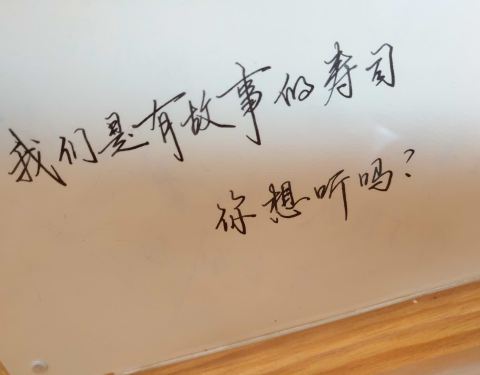 我们是有故事的寿司
你想听吗?